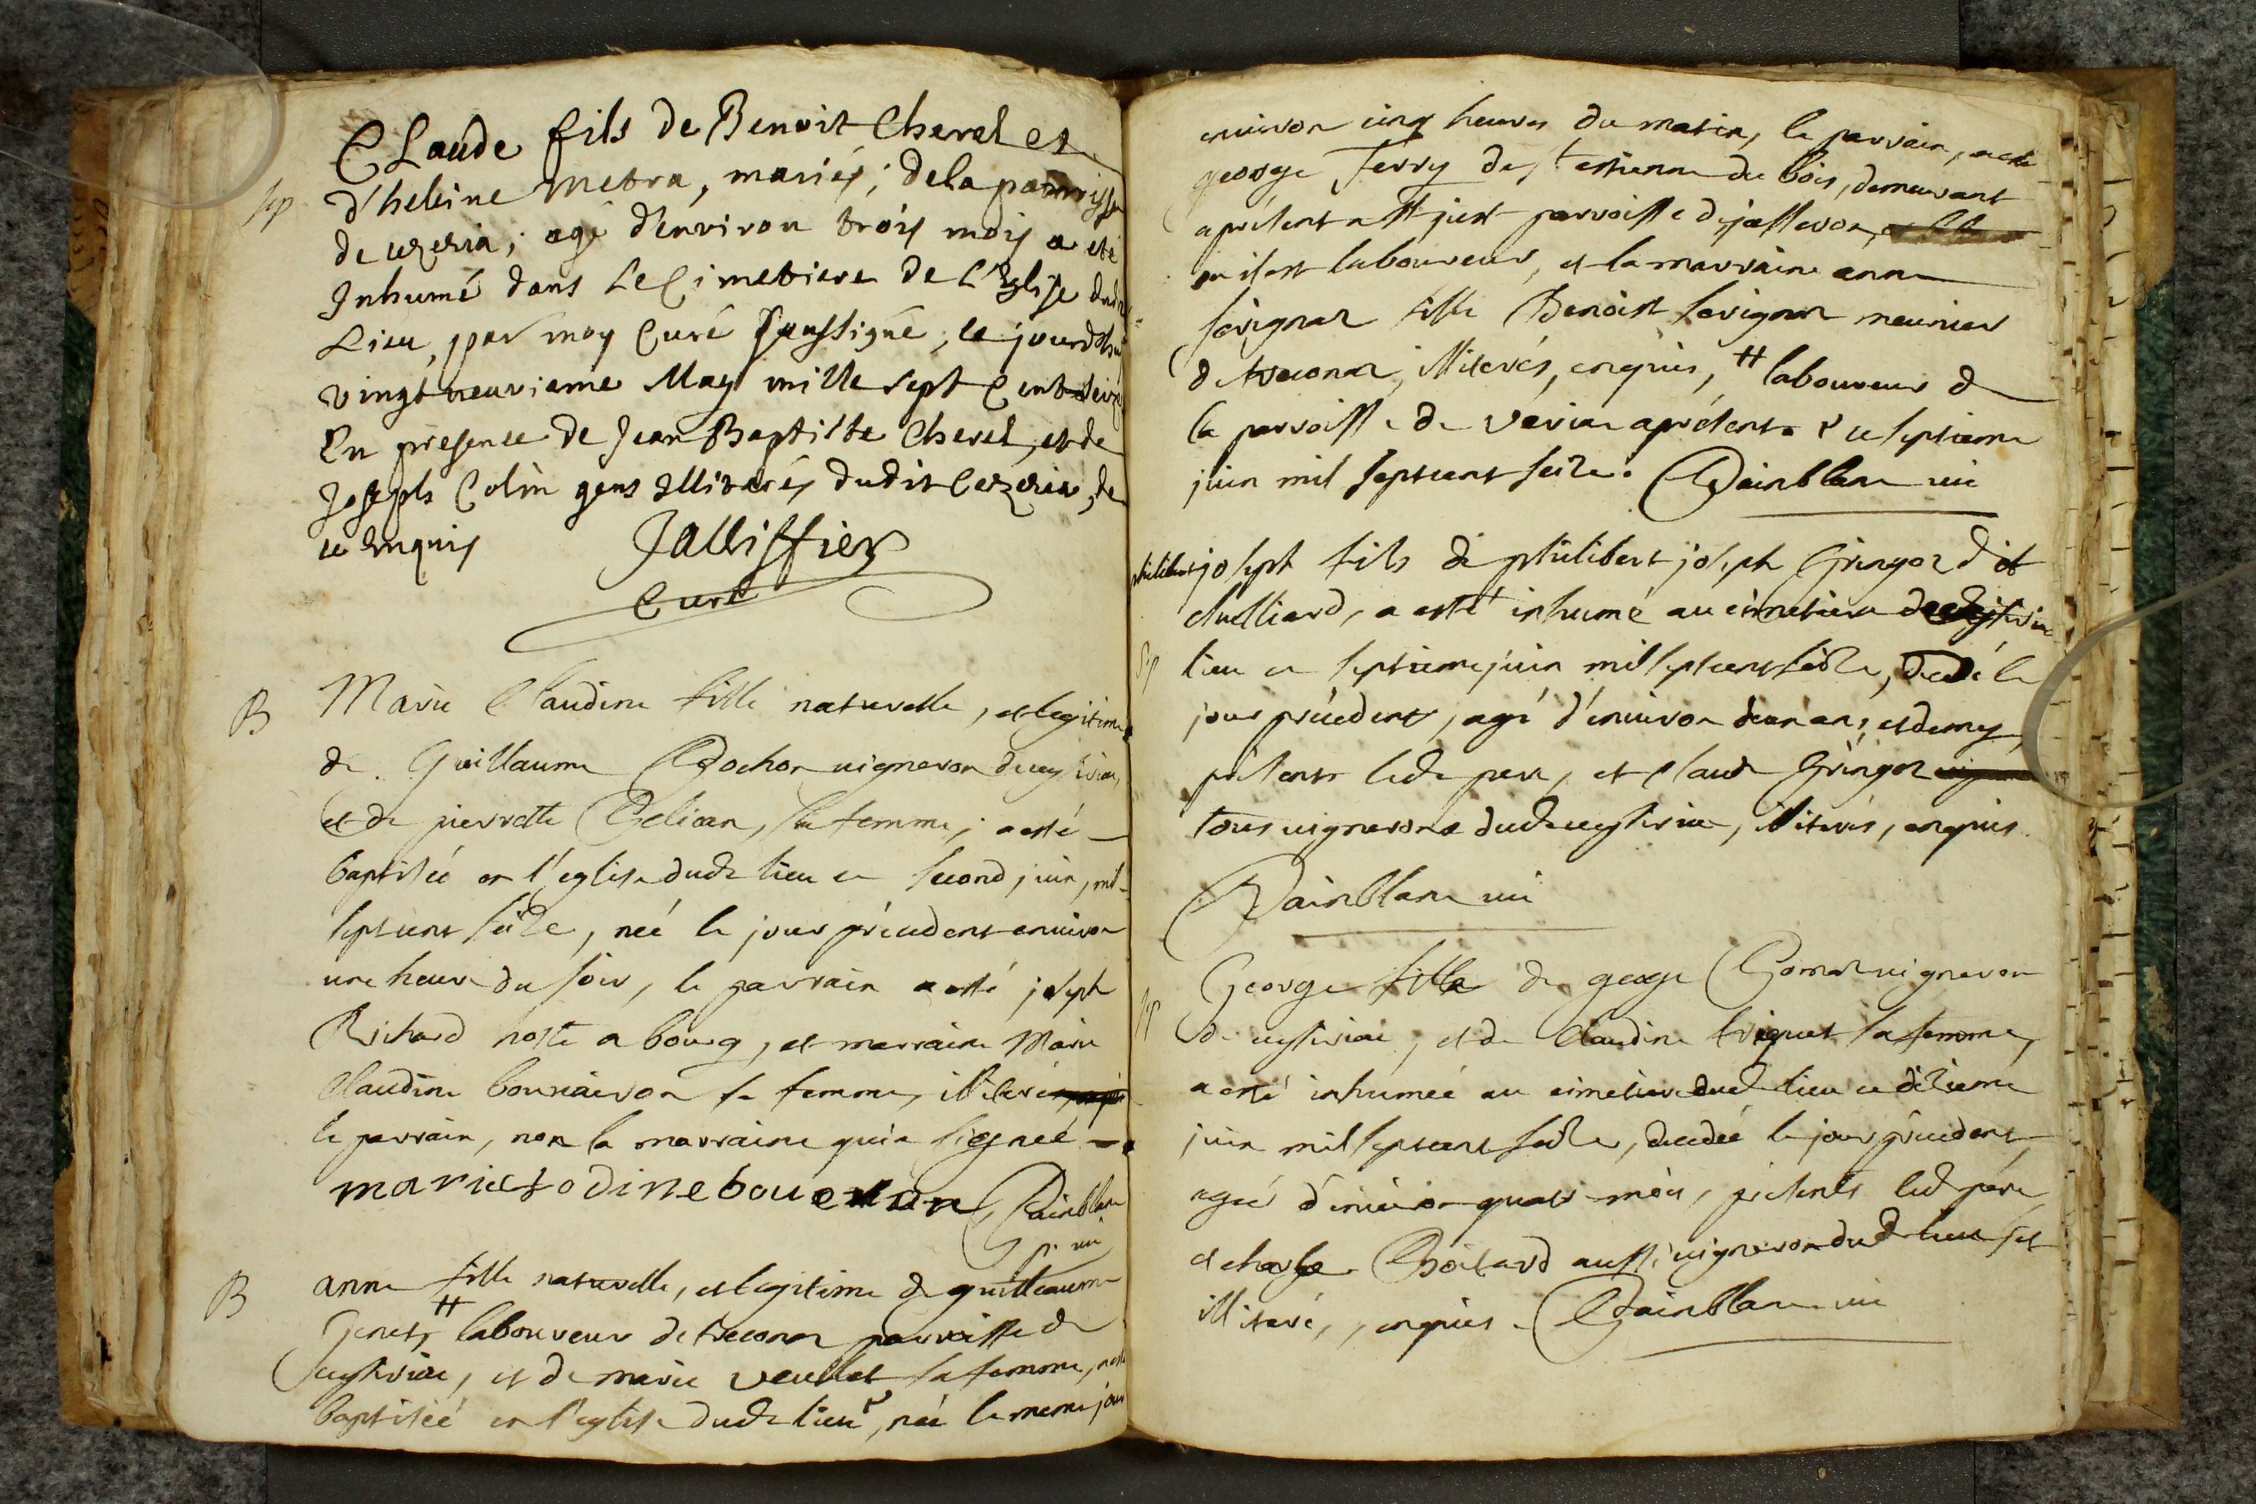 CLaude fils de Benoit Cherel et
Sep d'heleine Metra, mariés; dela parroisse
de ceyzeria; agé d'environ trois mois a eté
Inhumé dans Le Cimetiere de l'Eglise dudit
Lieu, par moy Curé soussigné, le jourdhui
vingt neuvieme May mille sept Cent seize
En presence de Jean Baptiste Cherel, et de
Joseph Colin gens Illiterés dudit Ceyzeria, de
ce Enquis Jalliffier
Curé
B Marie Claudine fille naturelle, et legitime
de Guillaume Bochon vigneron de ceyseria,
et de pierrette sa femme, a esté
baptisée en l'eglise dud lieu ce second juin, mil
septcent seize, née le jour précedent environ
une heure du soir, le parrain a esté joseph
Richard hoste a bourg, et marraine Marie
Claudine sa femme, illiteré
le parrain, non la marraine qui a signeé
Painblanc
B anne fille naturelle, et legitime de guilleaume
Genet, # laboureur de trecona parroisse de
ceyseria, et de marie veullet sa femme, a esté
baptiseé en l'eglise dud lieu, née le meme jour
environ cinq heures du matin, le parrain, a esté
george Ferry de st estienne du bois, demeurant
apresent a st just parroisse de jasseron,
ou il est laboureur, et la marraine anne
fille Benoist meunier
de trecona, illiterés, enquis, # laboureur de
la parroisse de apresent. ce septieme
juin mil septcent seize. Painblanc
philibert joseph fils de philibert joseph Gringoz dit
chulliard, a esté inhumé au cimetiere de ceyseria
Sp lieu ce septieme juin mil septcent seize, decedé le
jour précedent, agé d'environ deux ans et demy,
présents led pere, et Claude Gringoz
tous vignerons dud ceyseria, illiterés, enquis.
Painblanc
George fille de george vigneron
Sp de ceyseria, et de Claudine sa femme,
a esté inhumeé au cimetiere dud lieu ce dixieme
juin mil septcent seize, decedeé le jour précedent,
ageé d'environ quatre mois, présents led pére
et charle aussi vigneron dud lieu
illiteré, enquis. Painblanc